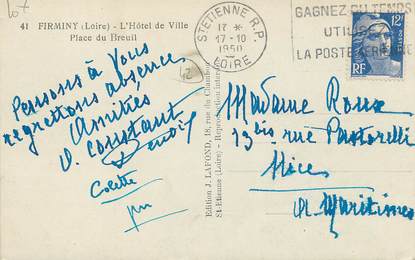 Lot
41 FIRMINY (Loire) - L'Hôtel de Ville
Place du Breuil
Pensons à Vous
regrettons absence
Amitiés
V. Constant
Benoit
Colette
42
Edition J. LAFOND, 18, rue du Chambon
St-Etienne (Loire) - Reproduction inter
ST ETIENNE R.P.
17 *
17-10
1950
LOIRE
GAGNEZ DU TEMPS
UTILIS
LA POSTE AERIENNE
12F
RF
Madame Roux
13 bis rue Pastorelli
Nice
A. Maritimes